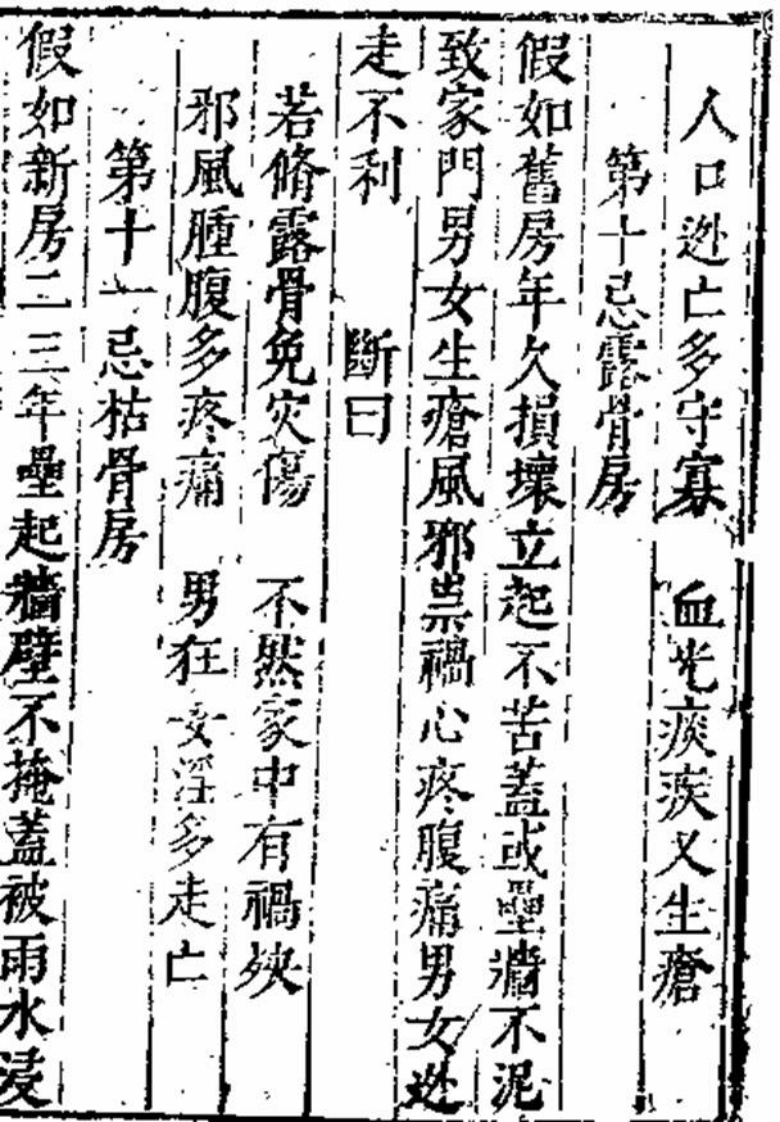 人口迯亡多守寡　血光痰疾又生瘡
第十忌露骨房
假如舊房年久損壞立起不苫蓋或壘墻不泥
致家門男女生瘡風邪祟禍心疼腹痛男女迯
走不利　斷曰
若脩露骨免灾傷　不然家中有禍殃
邪風腫腹多疼痛　男狂女淫多走亡
第十一忌枯骨房
假如新房二三年壘起墻壁不掩蓋被雨水浸